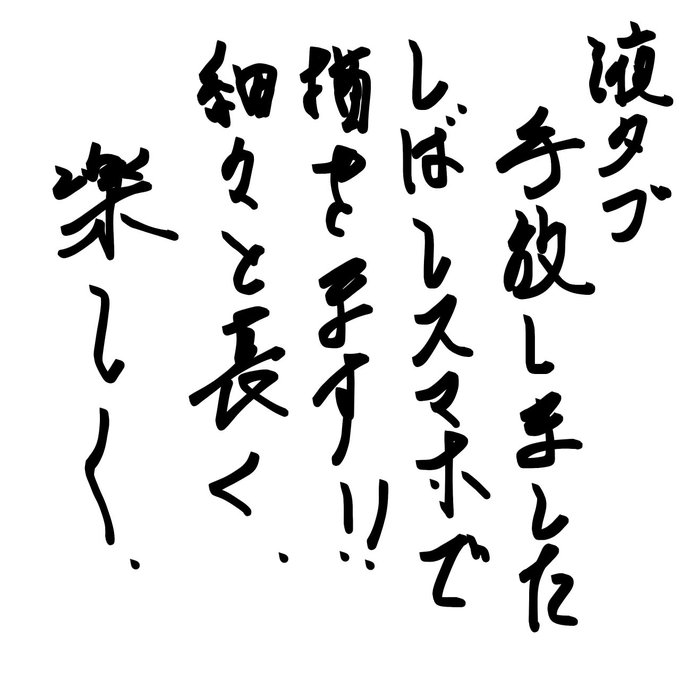 液タブ
手放しました
しばしスマホで
描きます!!
細々と長く.
楽し〜.